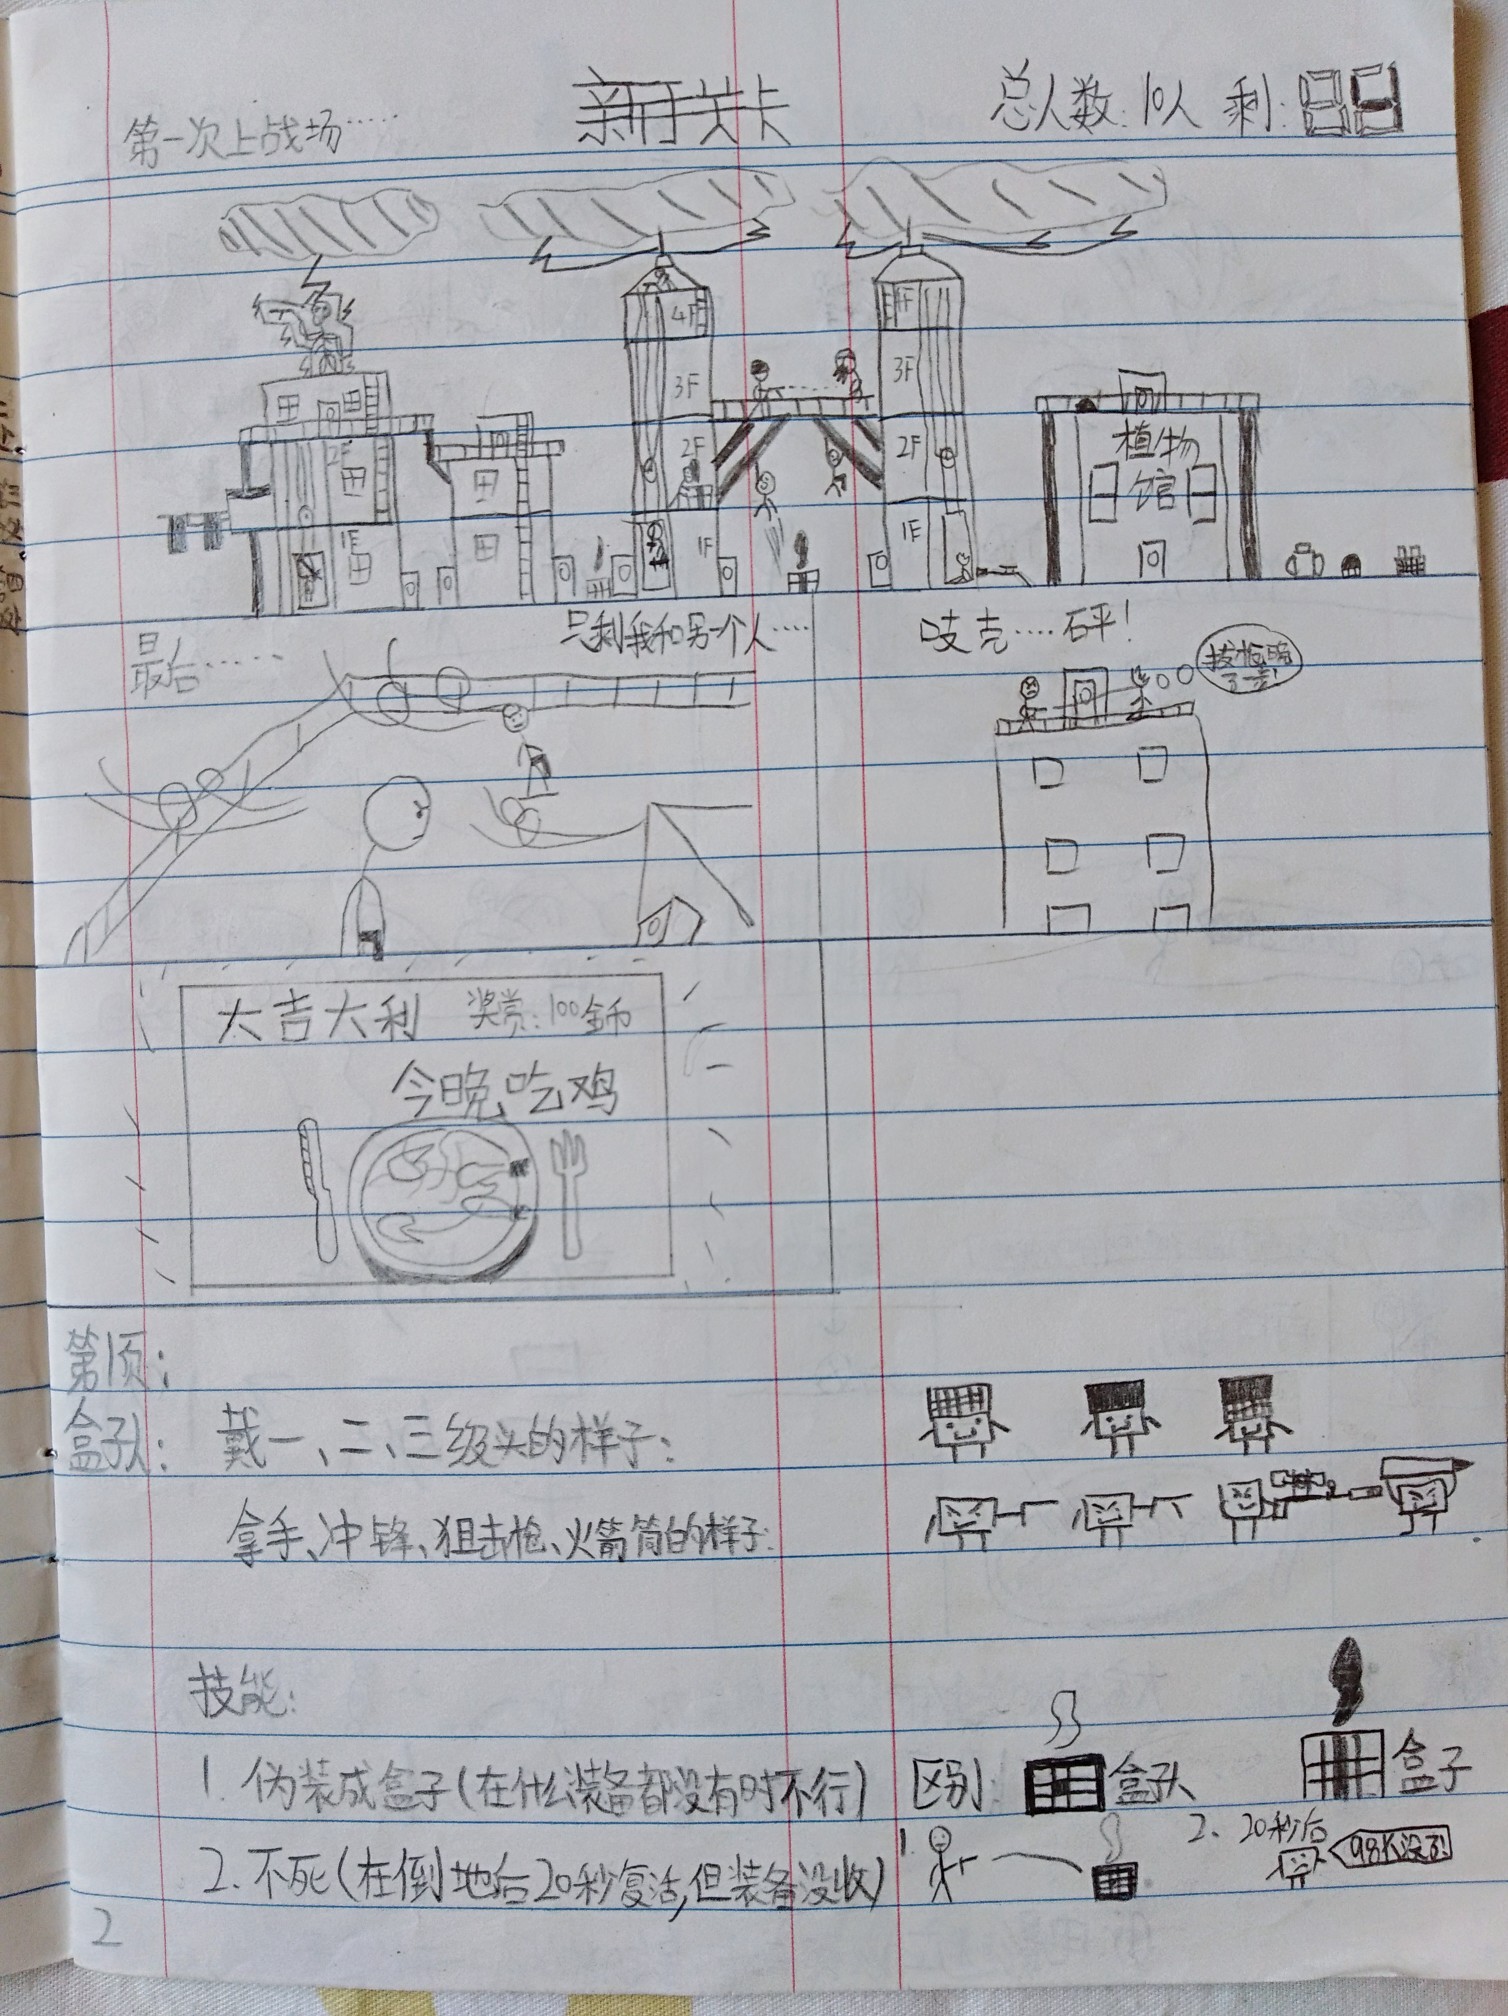 第一次上战场……
新手关卡
总人数:10人 剩:
4F
3F
2F
1F
3F
2F
1F
2F
1F
植物
馆
最后……
只剩我和另一个人……
吱克….砰!
大吉大利 奖赏:100金币
今晚吃鸡
第1页:
盒子队: 戴一、二、三级头的样子:
拿手、冲锋、狙击枪、火箭筒的样子:
技能:
1. 伪装成盒子(在什么装备都没有时不行) 区别: 盒子队 盒子
2. 不死(在倒地后20秒复活,但装备没收) 1. 2、20秒后 98K没了!
2